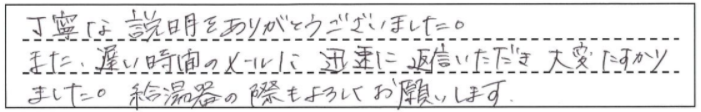 丁寧な説明をありがとうございました。
また、遅い時間のメールに迅速に返信いただき大変たすかり
ました。給湯器の際もよろしくお願いします.